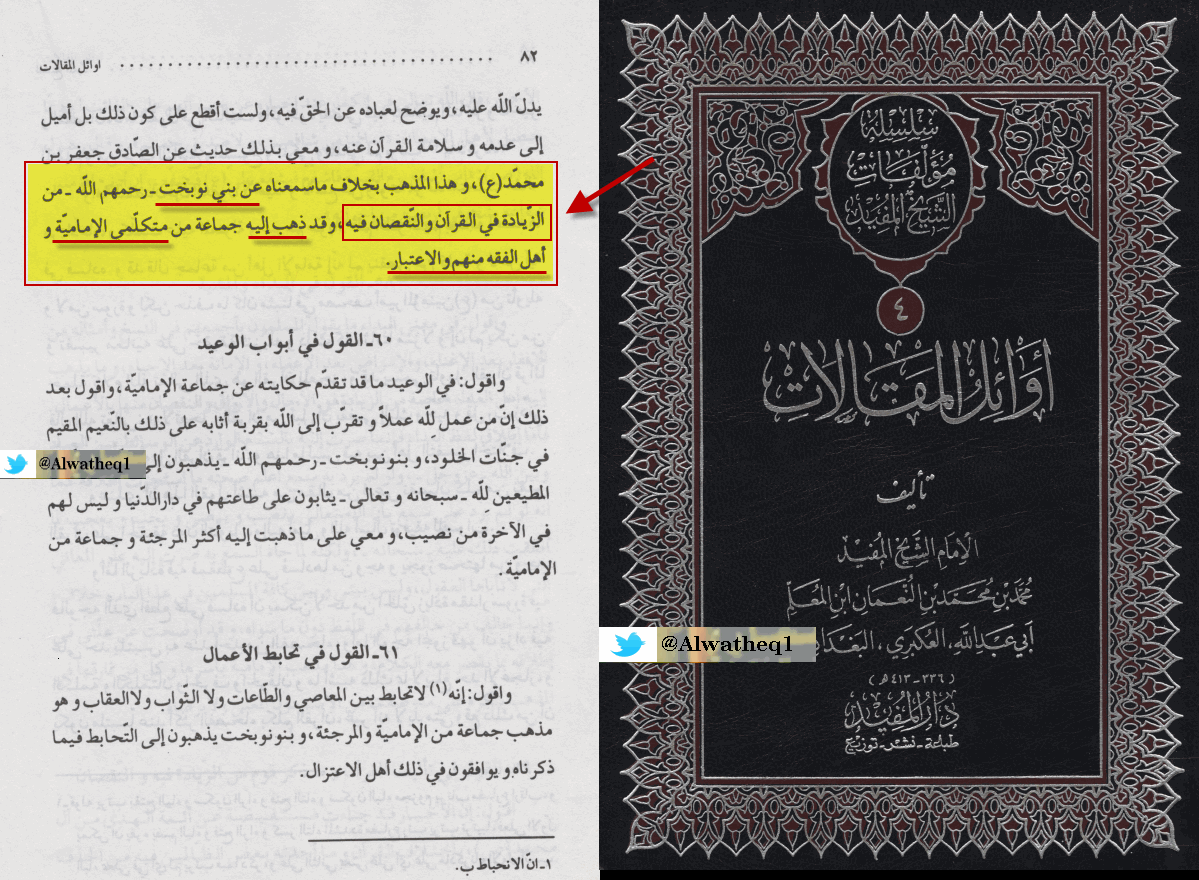 ٨٢ اوائل المقالات
يدلّ اللّه عليه، ويوضح لعباده عن الحقّ فيه، ولست أقطع على كون ذلك بل أميل
إلى عدمه و سلامة القرآن عنه، و معي بذلك حديث عن الصّادق جعفر بن
محمّد(ع)، و هذا المذهب بخلاف ماسمعناه عن بني نوبخت ـ رحمهم اللّه ـ من
الزّيادة في القرآن والنّقصان فيه، وقد ذهب إليه جماعة من متكلّمى الإماميّة و
أهل الفقه منهم والاعتبار.
٦٠ـ القول في أبواب الوعيد
واقول: في الوعيد ما قد تقدّم حكايته عن جماعة الإماميّة، واقول بعد
ذلك إنّ من عمل للّه عملاً و تقرّب إلى اللّه بقربة أثابه على ذلك بالنّعيم المقيم
في جنّات الخلود، و بنونوبخت ـ رحمهم اللّه ـ يذهبون إلى
المطيعين للّه ـ سبحانه و تعالى ـ يثابون على طاعتهم في دارالدّنيا و ليس لهم
في الآخرة من نصيب، و معي على ما ذهبت إليه أكثر المرجئة و جماعة من
الإماميّة.
٦١ـ القول في تحابط الأعمال
واقول: إنّه (١) لاتحابط بين المعاصي والطّاعات ولا الثّواب ولاالعقاب و هو
مذهب جماعة من الإماميّة والمرجئة، و بنونوبخت يذهبون إلى التّحابط فيما
ذكرناه و يوافقون في ذلك أهل الاعتزال.
١ـ انّ الانحباط ب.
@Alwatheq1
سلسلة
مؤلفات
الشيخ المفيد
٤
أوائل المقالات
تأليف
الإمام الشيخ المفيد
محمد بن محمد بن النعمان ابن المعلم
أبي عبد الله، العكبري، البغدا
@Alwatheq1
(٣٣٦-٤١٣ هـ)
دار المفيد
طباعة - نشر - توزيع